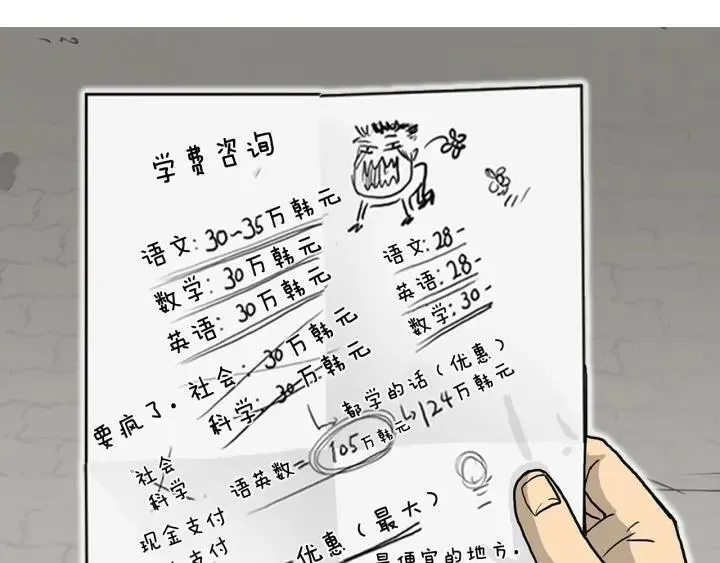 学费咨询
语文: 30~35万韩元
数学: 30万韩元
英语: 30万韩元
社会: 30万韩元
科学: 30万韩元
语文: 28-
英语: 28-
数学: 30-
要疯了.
都学的话(优惠)
124万韩元
语英数=105万韩元
社会
科学
现金支付
支付
优惠(最大)
最便宜的地方.